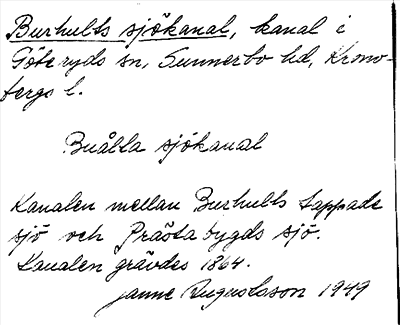 Burhults sjökanal, kanal i
Göteryds sn, Sunnerbo hd, Krono-
bergs l.
Buålla sjökanal
Kanalen mellan Burhults tappade
sjö och Prästabygds sjö.
Kanalen grävdes 1864.
Janne Augustsson 1949